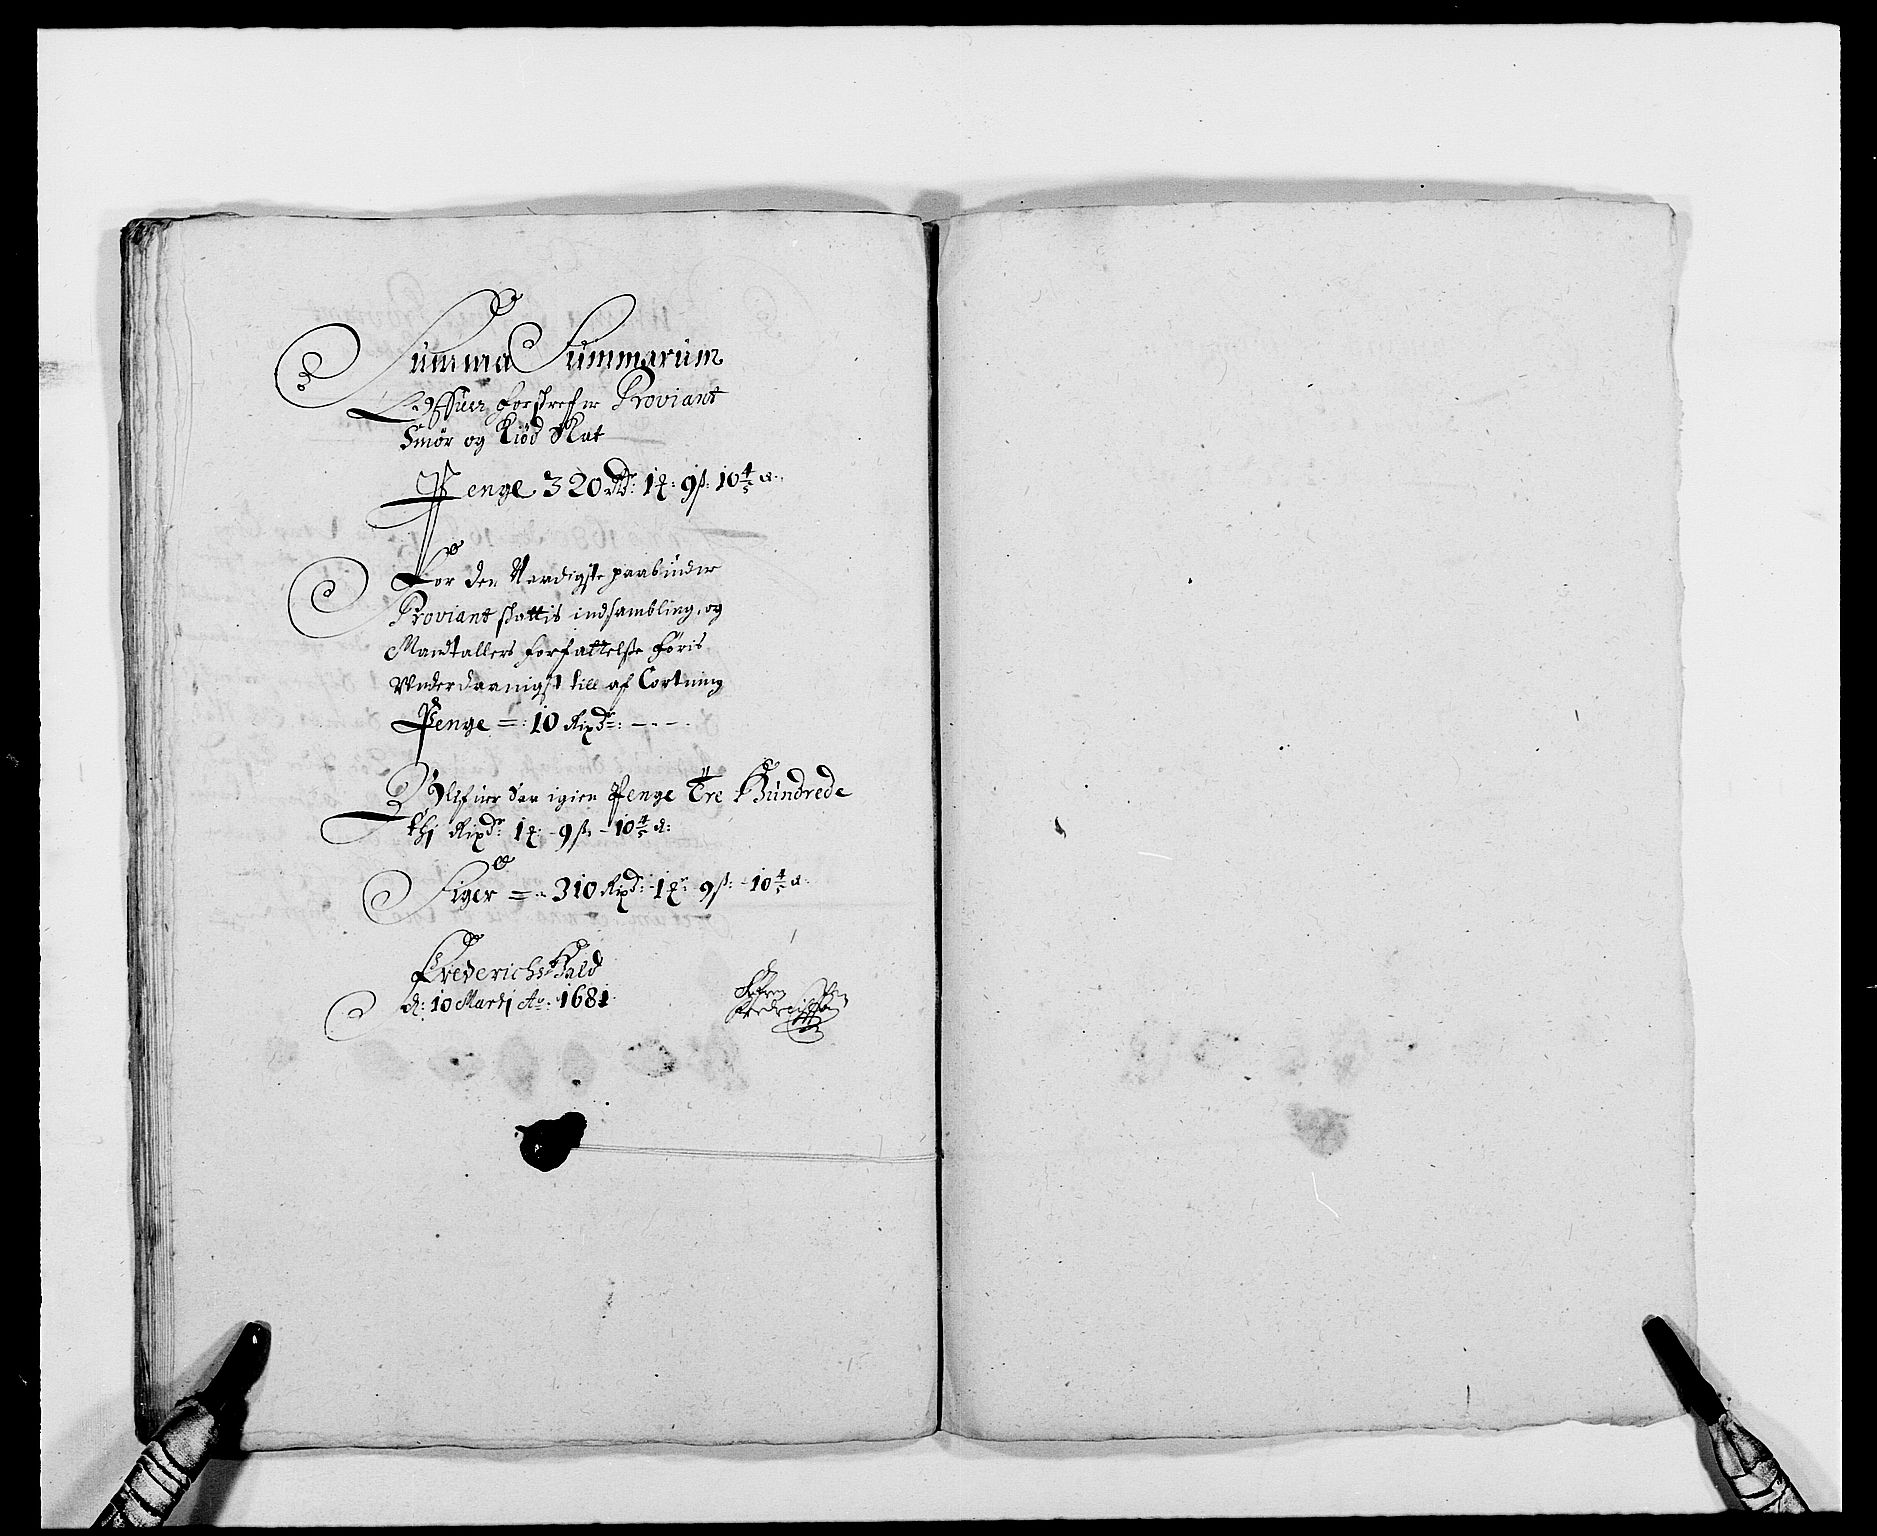 Summa Summarum
forskrefne Proviant
Smør og Kiød Skat
Penge 320 Rdr: 1 ʠ: 9 ß: 10 4/5 ₰:
For den Naadigste paabinder
Proviant skattis indsambling, og
Mandtallers forfattelße føris
Underdaanigst till af Cortning
Penge =: 10 Rixdr: - - - -
Blifuer Saa igien Penge Tre Hundrede
thj Rixdr: 1 ʠ: - 9 ß: - 10 4/5 ₰:
Siger = 310 Rixdr: 1 ʠ: 9 ß: - 10 4/5 ₰:
Frederichs Hald
d: 10 Martj Ao: 1681